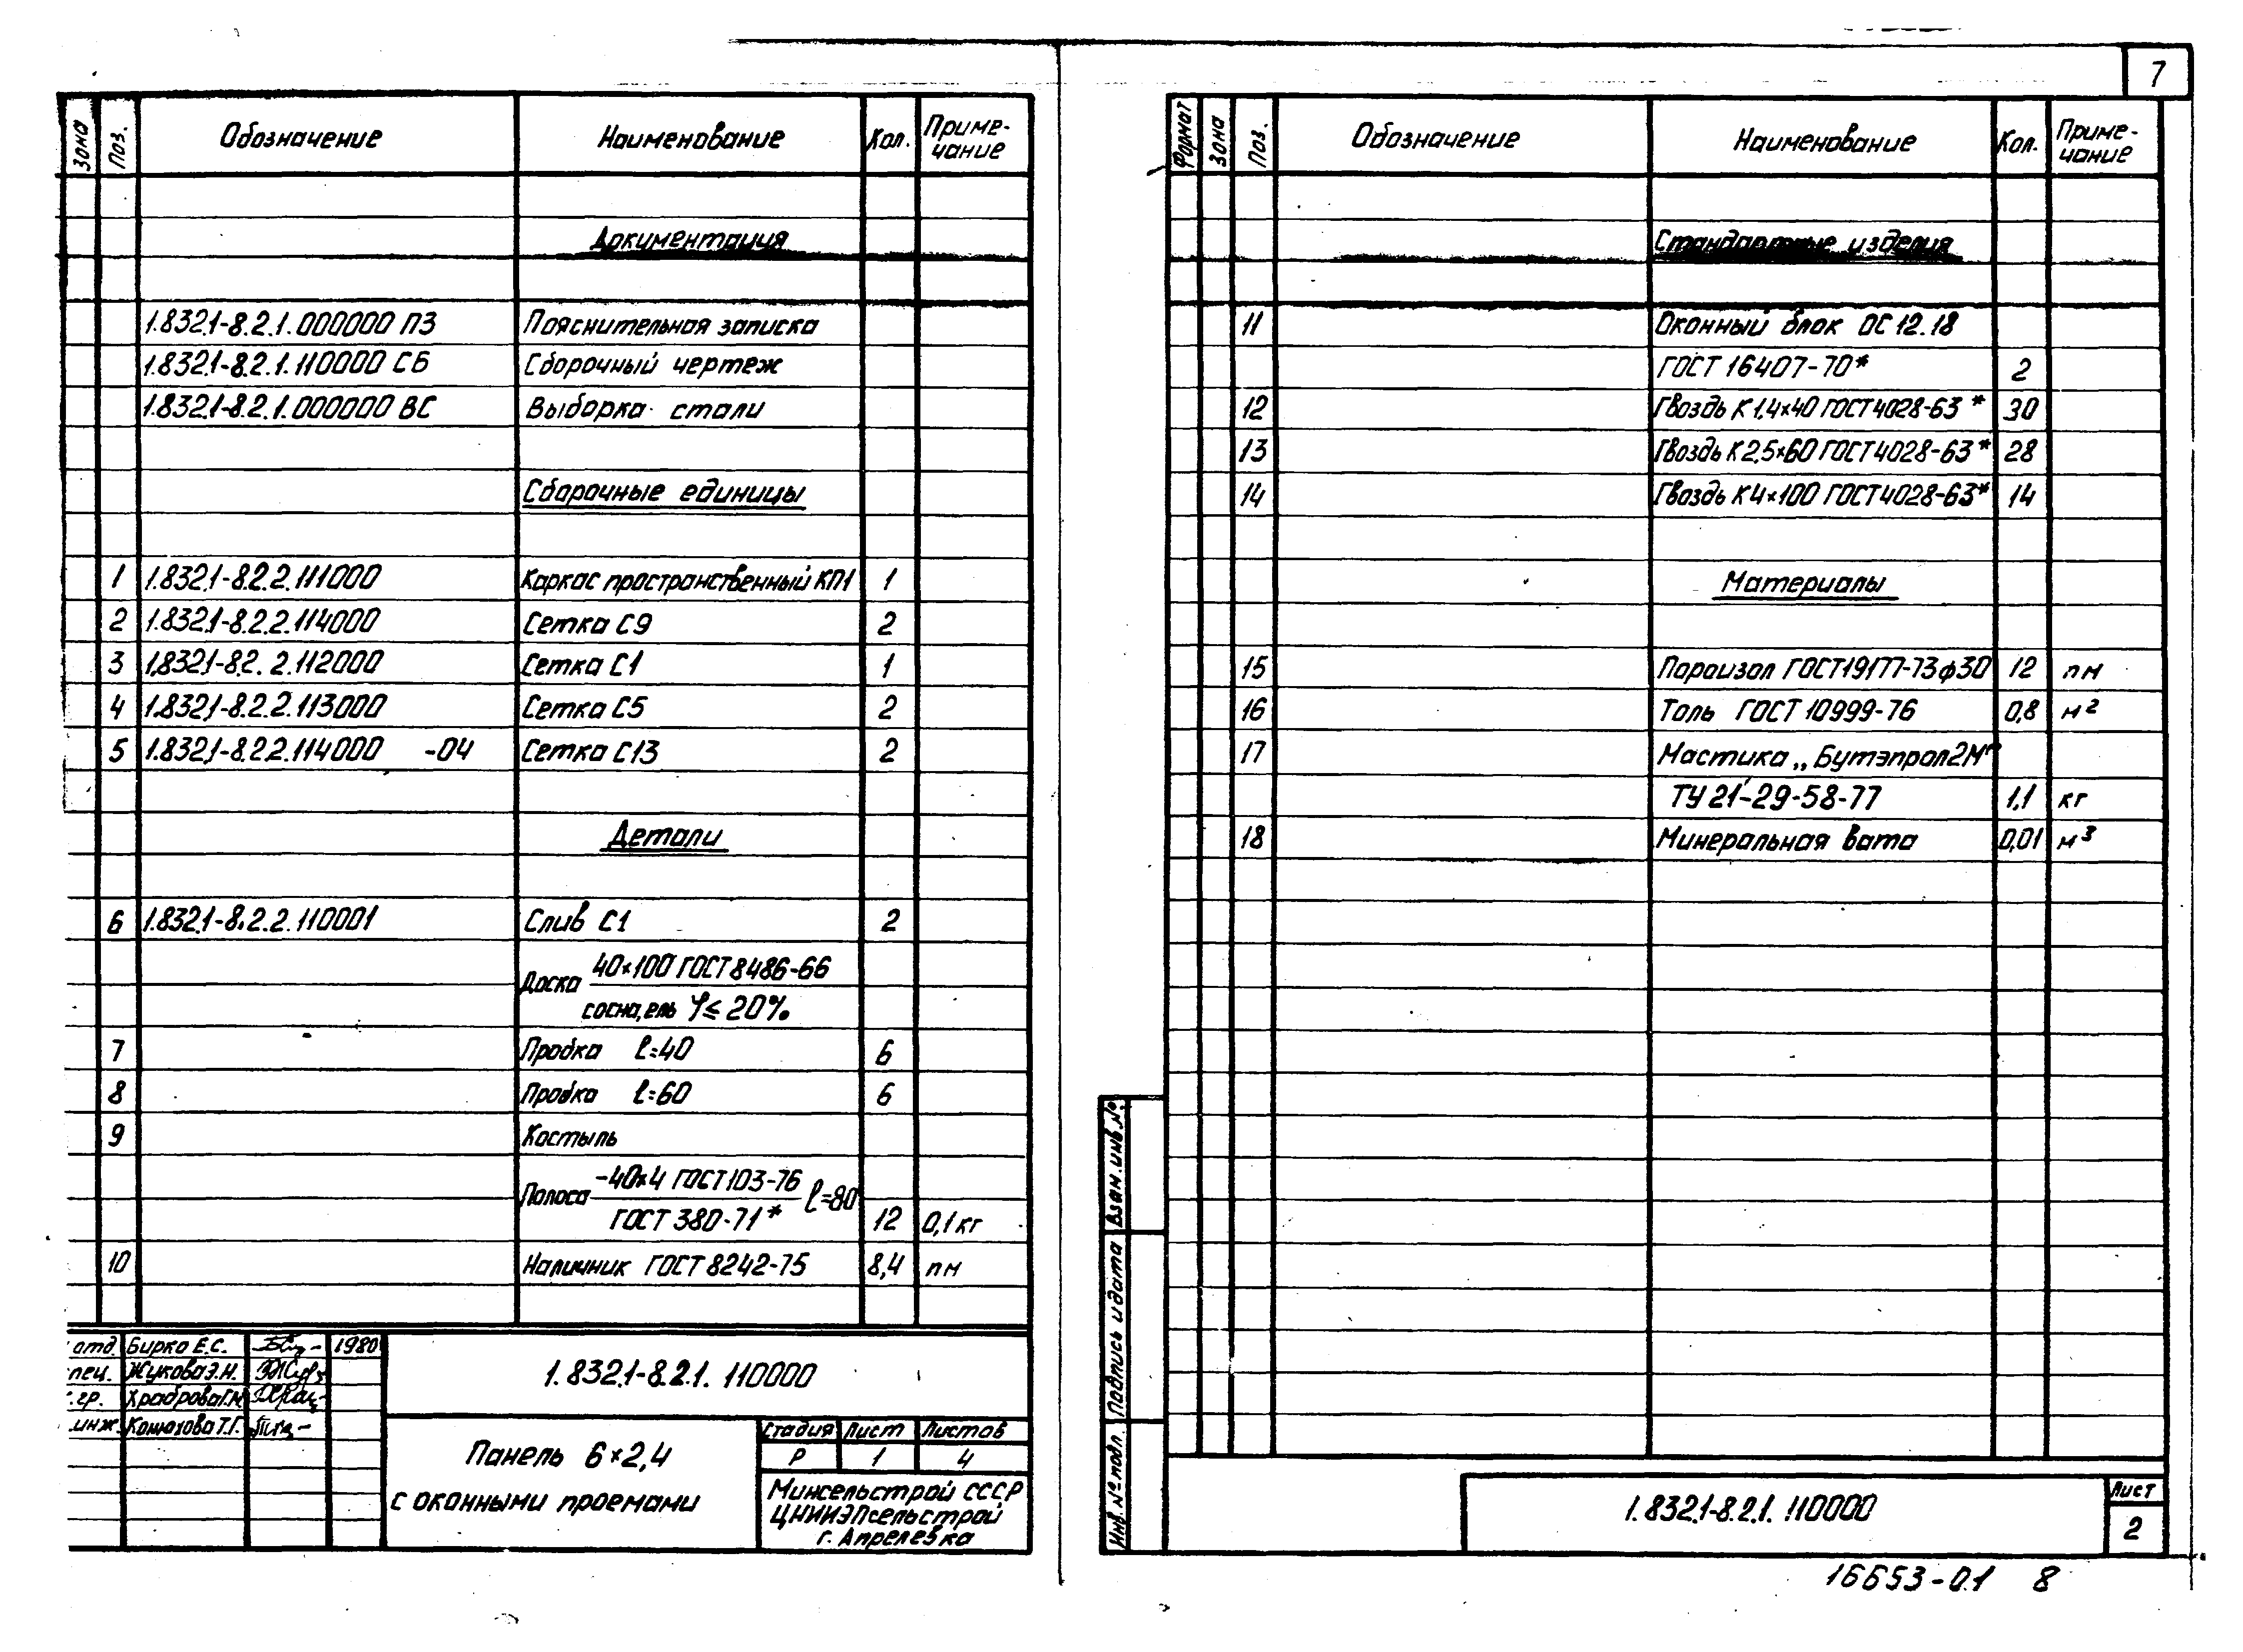 7
Зона Поз. Обозначение Наименование Кол. Приме-
чание
Документация
1.832.1-8.2.1.000000 ПЗ Пояснительная записка
1.832.1-8.2.1.110000 СБ Сборочный чертеж
1.832.1-8.2.1.000000 ВС Выборка стали
Сборочные единицы
1 1.832.1-8.2.2.111000 Каркас пространственный КП1 1
2 1.832.1-8.2.2.114000 Сетка С9 2
3 1.832.1-8.2.2.112000 Сетка С1 1
4 1.832.1-8.2.2.113000 Сетка С5 2
5 1.832.1-8.2.2.114000 -04 Сетка С13 2
Детали
6 1.832.1-8.2.2.110001 Слив С1 2
Доска 40×100 ГОСТ 8486-66
сосна, ель φ≤20%
7 Пробка ℓ=40 6
8 Пробка ℓ=60 6
9 Костыль
Полоса -40×4 ГОСТ 103-76 ℓ=80
ГОСТ 380-71* 12 0,1 кг
10 Наличник ГОСТ 8242-75 8,4 пм
отд. Бирко Е.С. 1980
пец. Жукова Э.Н.
.гр. Храброва Г.М.
.инж. Комагова Т.Г.
1.832.1-8.2.1. 110000
Панель 6×2,4
с оконными проемами
Стадия Лист Листов
Р 1 4
Минсельстрой СССР
ЦНИИЭПсельстрой
г. Апрелевка
Формат Зона Поз. Обозначение Наименование Кол. Приме-
чание
Стандартные изделия
11 Оконный блок ОС 12.18
ГОСТ 16407-70* 2
12 Гвоздь К 1,4×40 ГОСТ 4028-63* 30
13 Гвоздь К 2,5×60 ГОСТ 4028-63* 28
14 Гвоздь К 4×100 ГОСТ 4028-63* 14
Материалы
15 Пароизол ГОСТ 19177-73 ф30 12 пм
16 Толь ГОСТ 10999-76 0,8 м²
17 Мастика „Бутэпрол 2М"
ТУ 21-29-58-77 1,1 кг
18 Минеральная вата 0,01 м³
Инв. № подл. Подпись и дата Взам. инв. №
1.832.1-8.2.1. 110000
Лист
2
16653-01 8